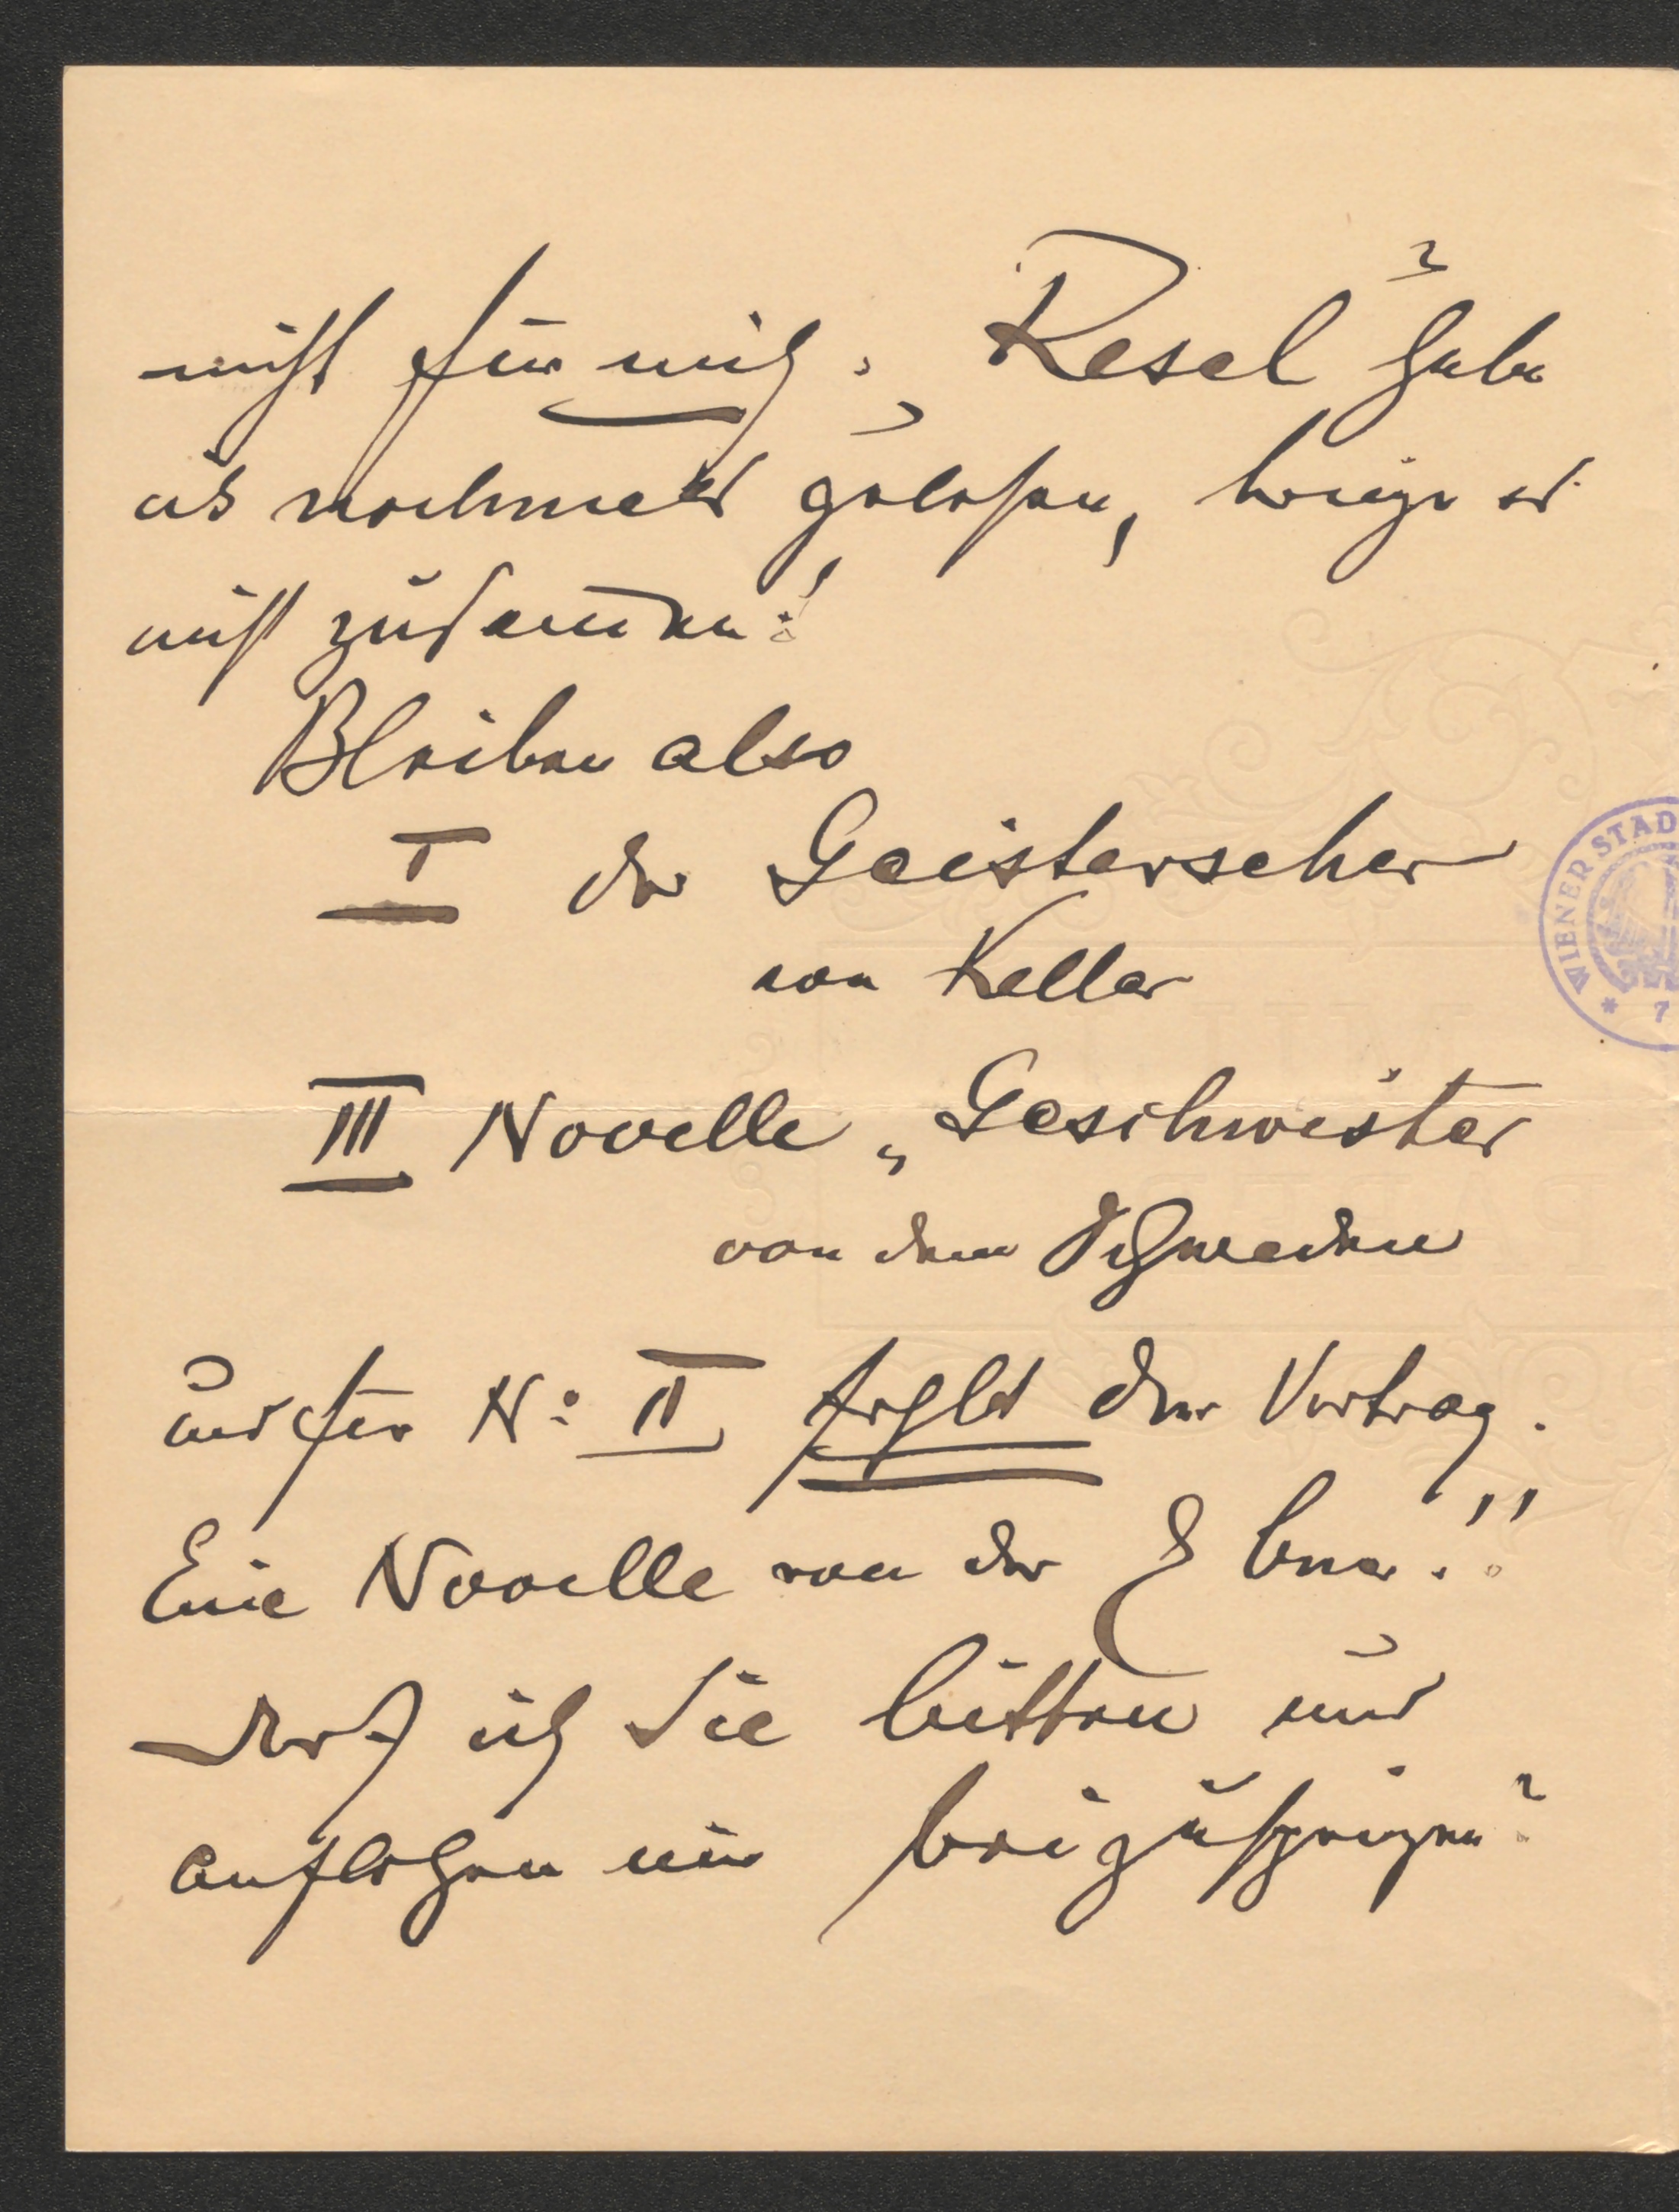 nicht für mich. Resel habe
ich nochmals gelesen, bringe es
nicht zusammen!
Bleiben also
I der Geisterseher
von Keller
III Novelle „Geschwister
von dem Schweden
und für N: II fehlt der Vortrag.
Eine Novelle von der Ebner!!
Darf ich Sie bitten mir
rathen mir beizuspringen?
WIENER STAD
* 7